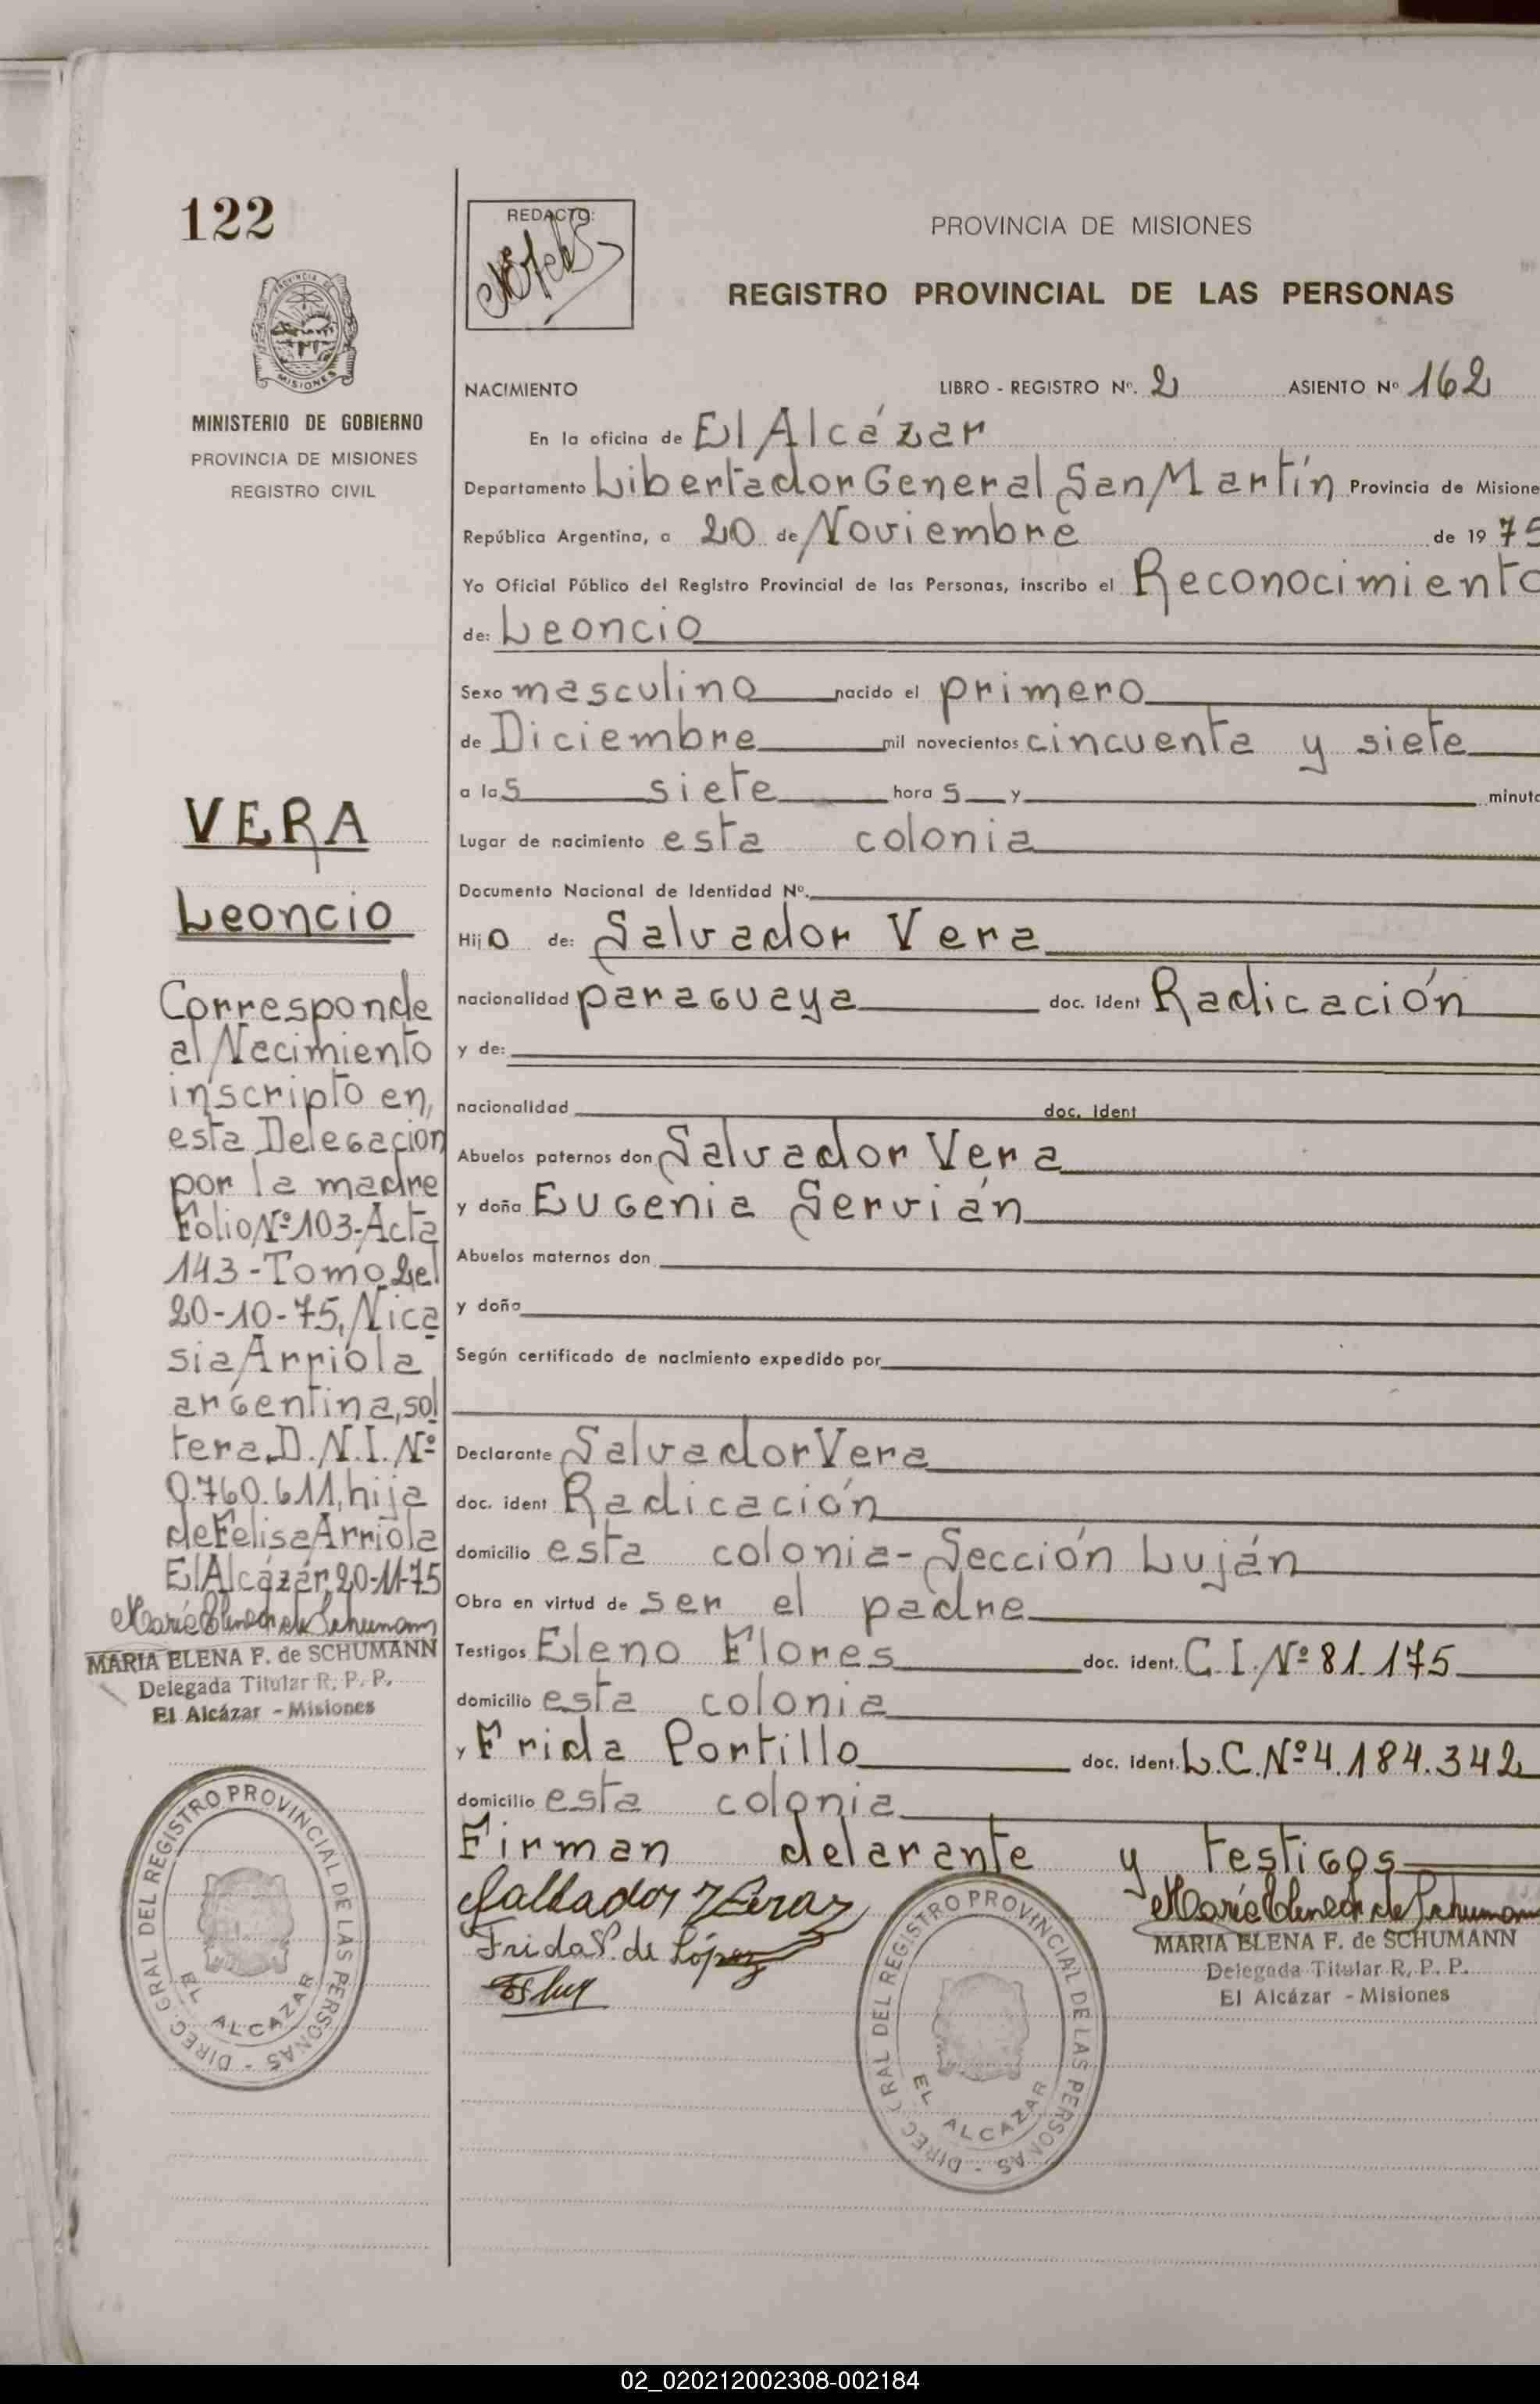 122
MISIONES
MINISTERIO DE GOBIERNO
PROVINCIA DE MISIONES
REGISTRO CIVIL
VERA
Leoncio
Corresponde
al Nacimiento
inscripto en
esta Delegación
por la madre
Folio Nº 103-Acta
143-Tomo 2 el
20-10-75, Nica
sia Arriola
argentina, sol
tera D.N.I. Nº
0.760.611, hija
de Felisa Arriola
El Alcázár, 20-11-75
MARIA ELENA F. de SCHUMANN
Delegada Titular R. P. P.
El Alcázar - Misiones
DIREC. GRAL DEL REGISTRO PROVINCIAL DE LAS PERSONAS -
EL ALCAZAR
REDACTO:
PROVINCIA DE MISIONES
REGISTRO PROVINCIAL DE LAS PERSONAS
NACIMIENTO LIBRO - REGISTRO Nº. 2 ASIENTO Nº 162
En la oficina de El Alcázar
Departamento Libertador General San Martín Provincia de Misione
República Argentina, a 20 de Noviembre de 1975
Yo Oficial Público del Registro Provincial de las Personas, inscribo el Reconocimiento
de: Leoncio
Sexo masculino nacido el primero
de Diciembre mil novecientos cincuenta y siete
a las siete horas y minuto
Lugar de nacimiento esta colonia
Documento Nacional de Identidad Nº.
Hijo de: Salvador Vera
nacionalidad paraguaya doc. ident Radicación
y de:
nacionalidad doc. ident
Abuelos paternos don Salvador Vera
y doña Eugenia Servián
Abuelos maternos don
y doña
Según certificado de nacimiento expedido por
Declarante Salvador Vera
doc. ident Radicación
domicilio esta colonia-Sección Luján
Obra en virtud de ser el padre
Testigos Eleno Flores doc. ident. C.I. Nº 81.175
domicilio esta colonia
y Frida Portillo doc. ident. L.C. Nº 4.184.342
domicilio esta colonia
Firman delarante y testigos
Frida P. de López
MARIA ELENA F. de SCHUMANN
Delegada Titular R. P. P.
El Alcázar - Misiones
DIREC. GRAL DEL REGISTRO PROVINCIAL DE LAS PERSONAS -
EL ALCAZAR
02_020212002308-002184